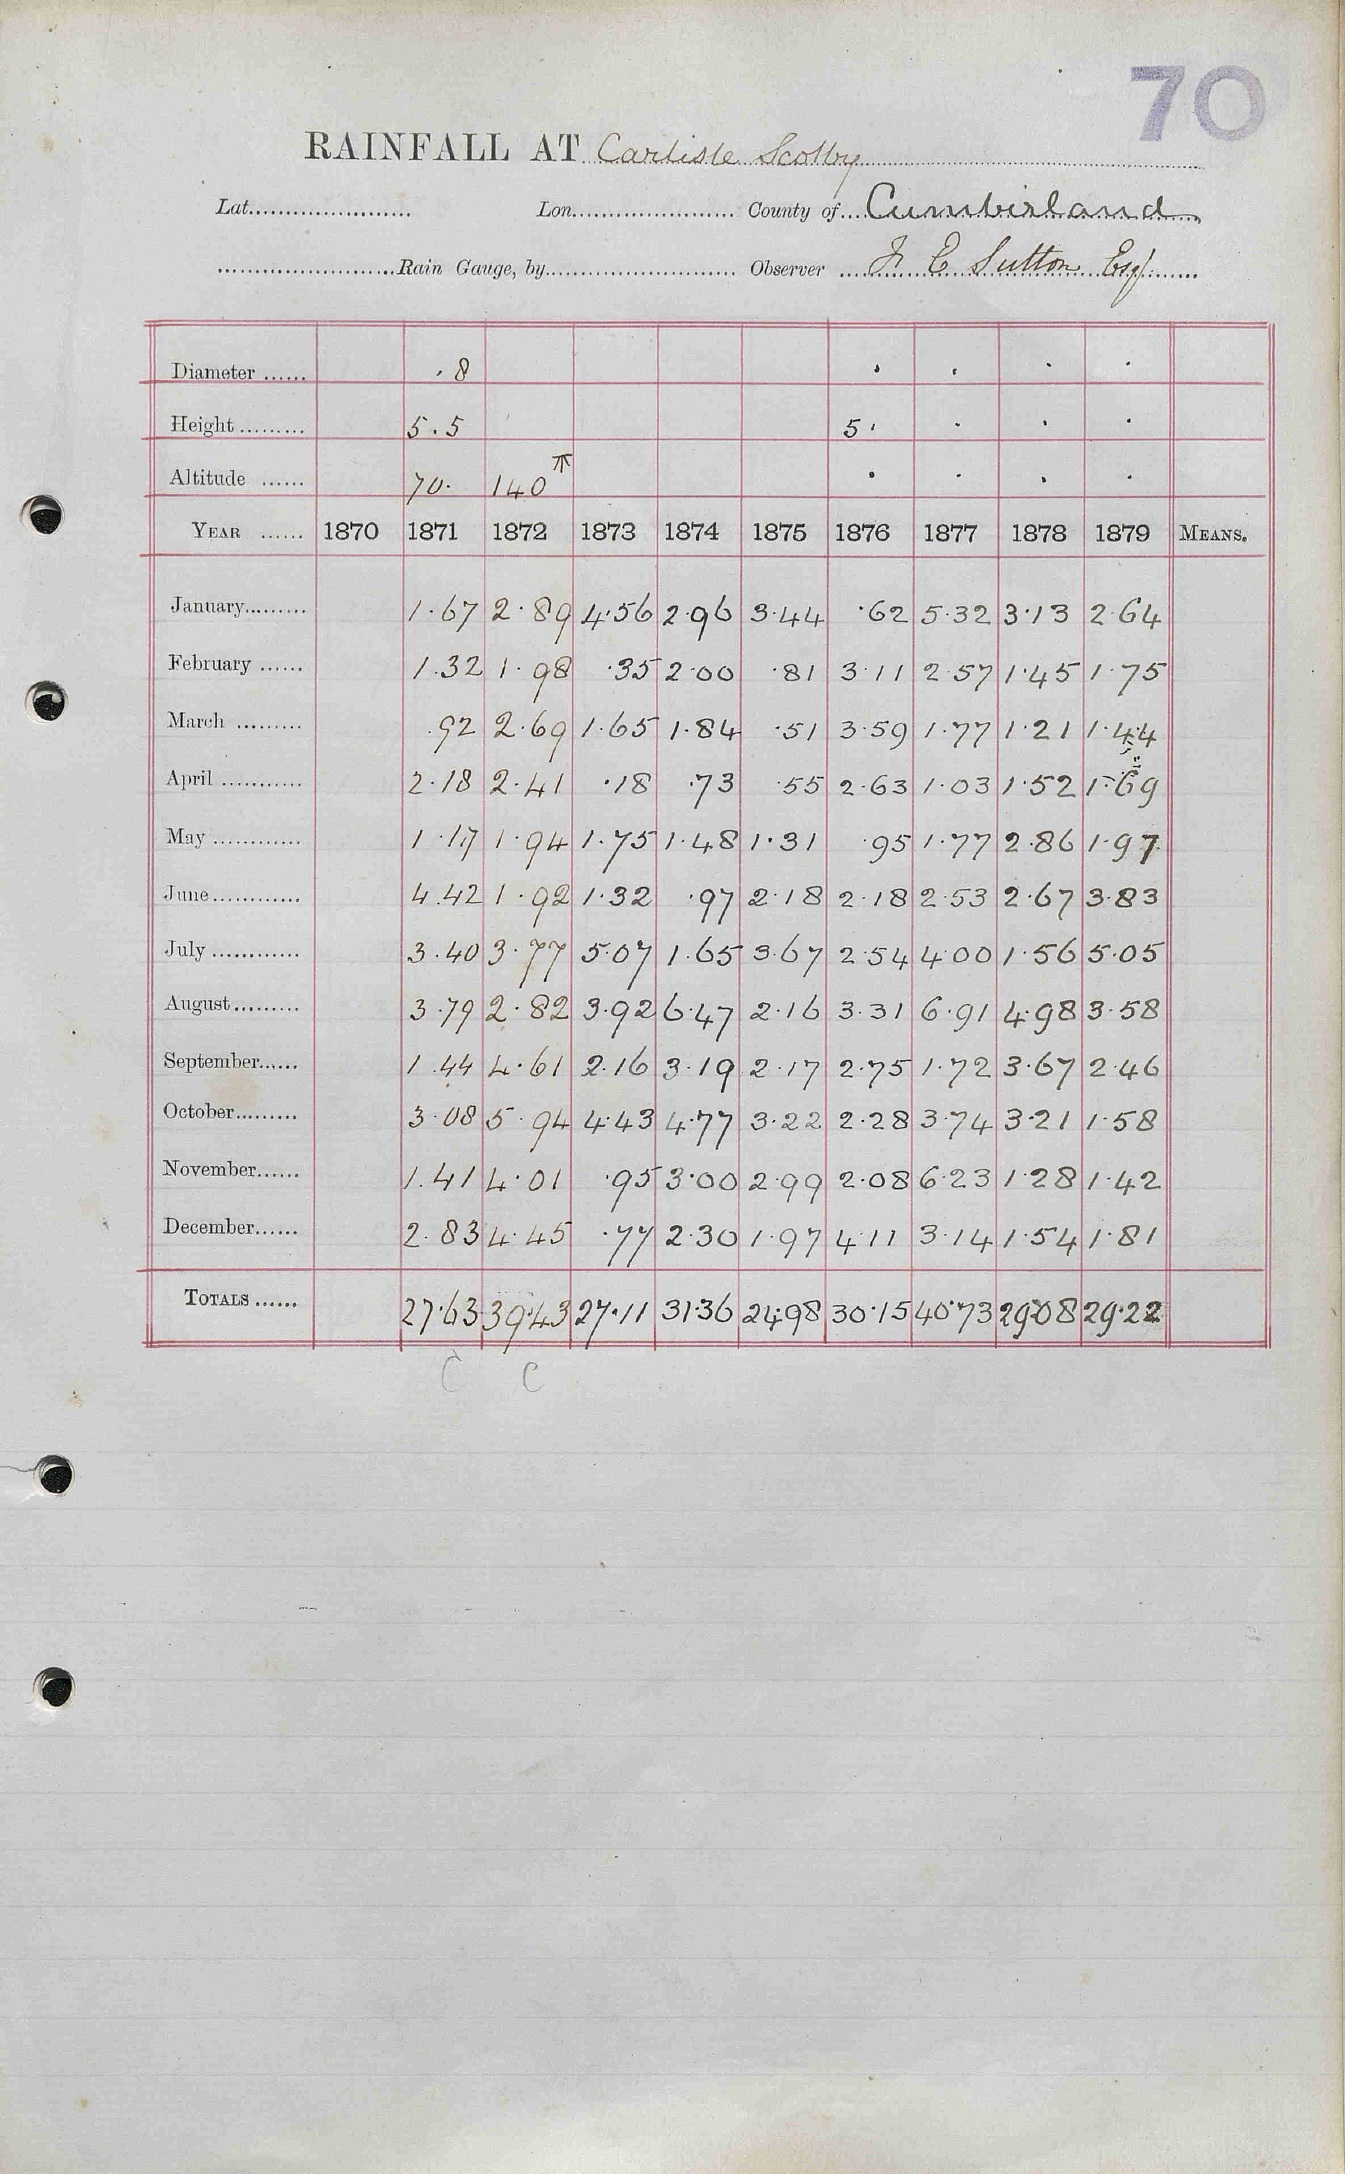 70
RAINFALL AT Carlisle Scotby
Lat. Lon. County of Cumberland
Rain Gauge, by Observer F C Sutton Esq
Diameter ...... .8 . . . .
Height ......... 5.5 5. . . .
Altitude ...... 70. 140 . . . .
YEAR ...... 1870 1871 1872 1873 1874 1875 1876 1877 1878 1879 MEANS.
January......... 1.67 2.89 4.56 2.96 3.44 .62 5.32 3.13 2.64
February ...... 1.32 1.98 .35 2.00 .81 3.11 2.57 1.45 1.75
March ......... .92 2.69 1.65 1.84 .51 3.59 1.77 1.21 1.44
April ........... 2.18 2.41 .18 .73 .55 2.63 1.03 1.52 1.69
May ............ 1.17 1.94 1.75 1.48 1.31 .95 1.77 2.86 1.97
June............ 4.42 1.92 1.32 .97 2.18 2.18 2.53 2.67 3.83
July ............ 3.40 3.77 5.07 1.65 3.67 2.54 4.00 1.56 5.05
August......... 3.79 2.82 3.92 6.47 2.16 3.31 6.91 4.98 3.58
September...... 1.44 4.61 2.16 3.19 2.17 2.75 1.72 3.67 2.46
October......... 3.08 5.94 4.43 4.77 3.22 2.28 3.74 3.21 1.58
November...... 1.41 4.01 .95 3.00 2.99 2.08 6.23 1.28 1.42
December...... 2.83 4.45 .77 2.30 1.97 4.11 3.14 1.54 1.81
TOTALS ...... 27.63 39.43 27.11 31.36 24.98 30.15 40.73 29.08 29.22
C C